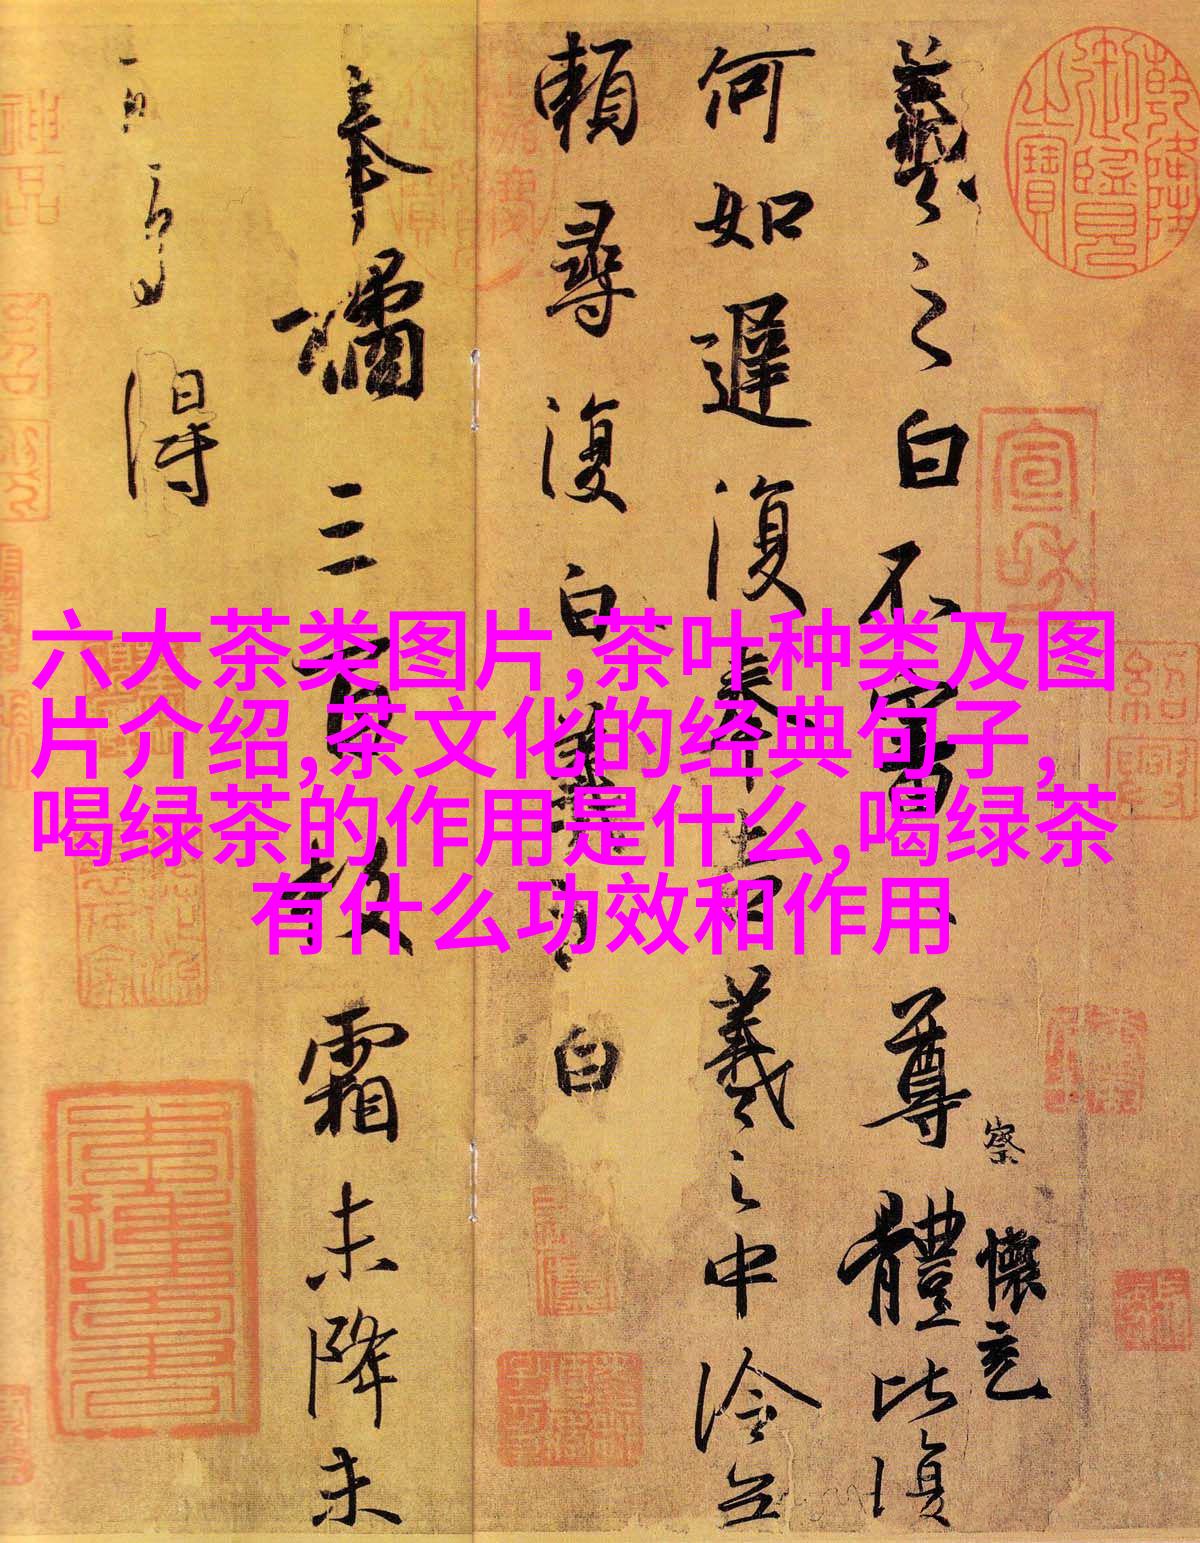 六大茶类图片,茶叶种类及图
片介绍,茶文化的经典句子,
喝绿茶的作用是什么,喝绿茶
有什么功效和作用
羲之白不審尊體比復
察
懷充
何如遲復奉告羲之中冷無
賴尋復白羲之白
奉橘三百枚霜未降未
可多得
乾隆御覽之寶
宣和
紹興
神品